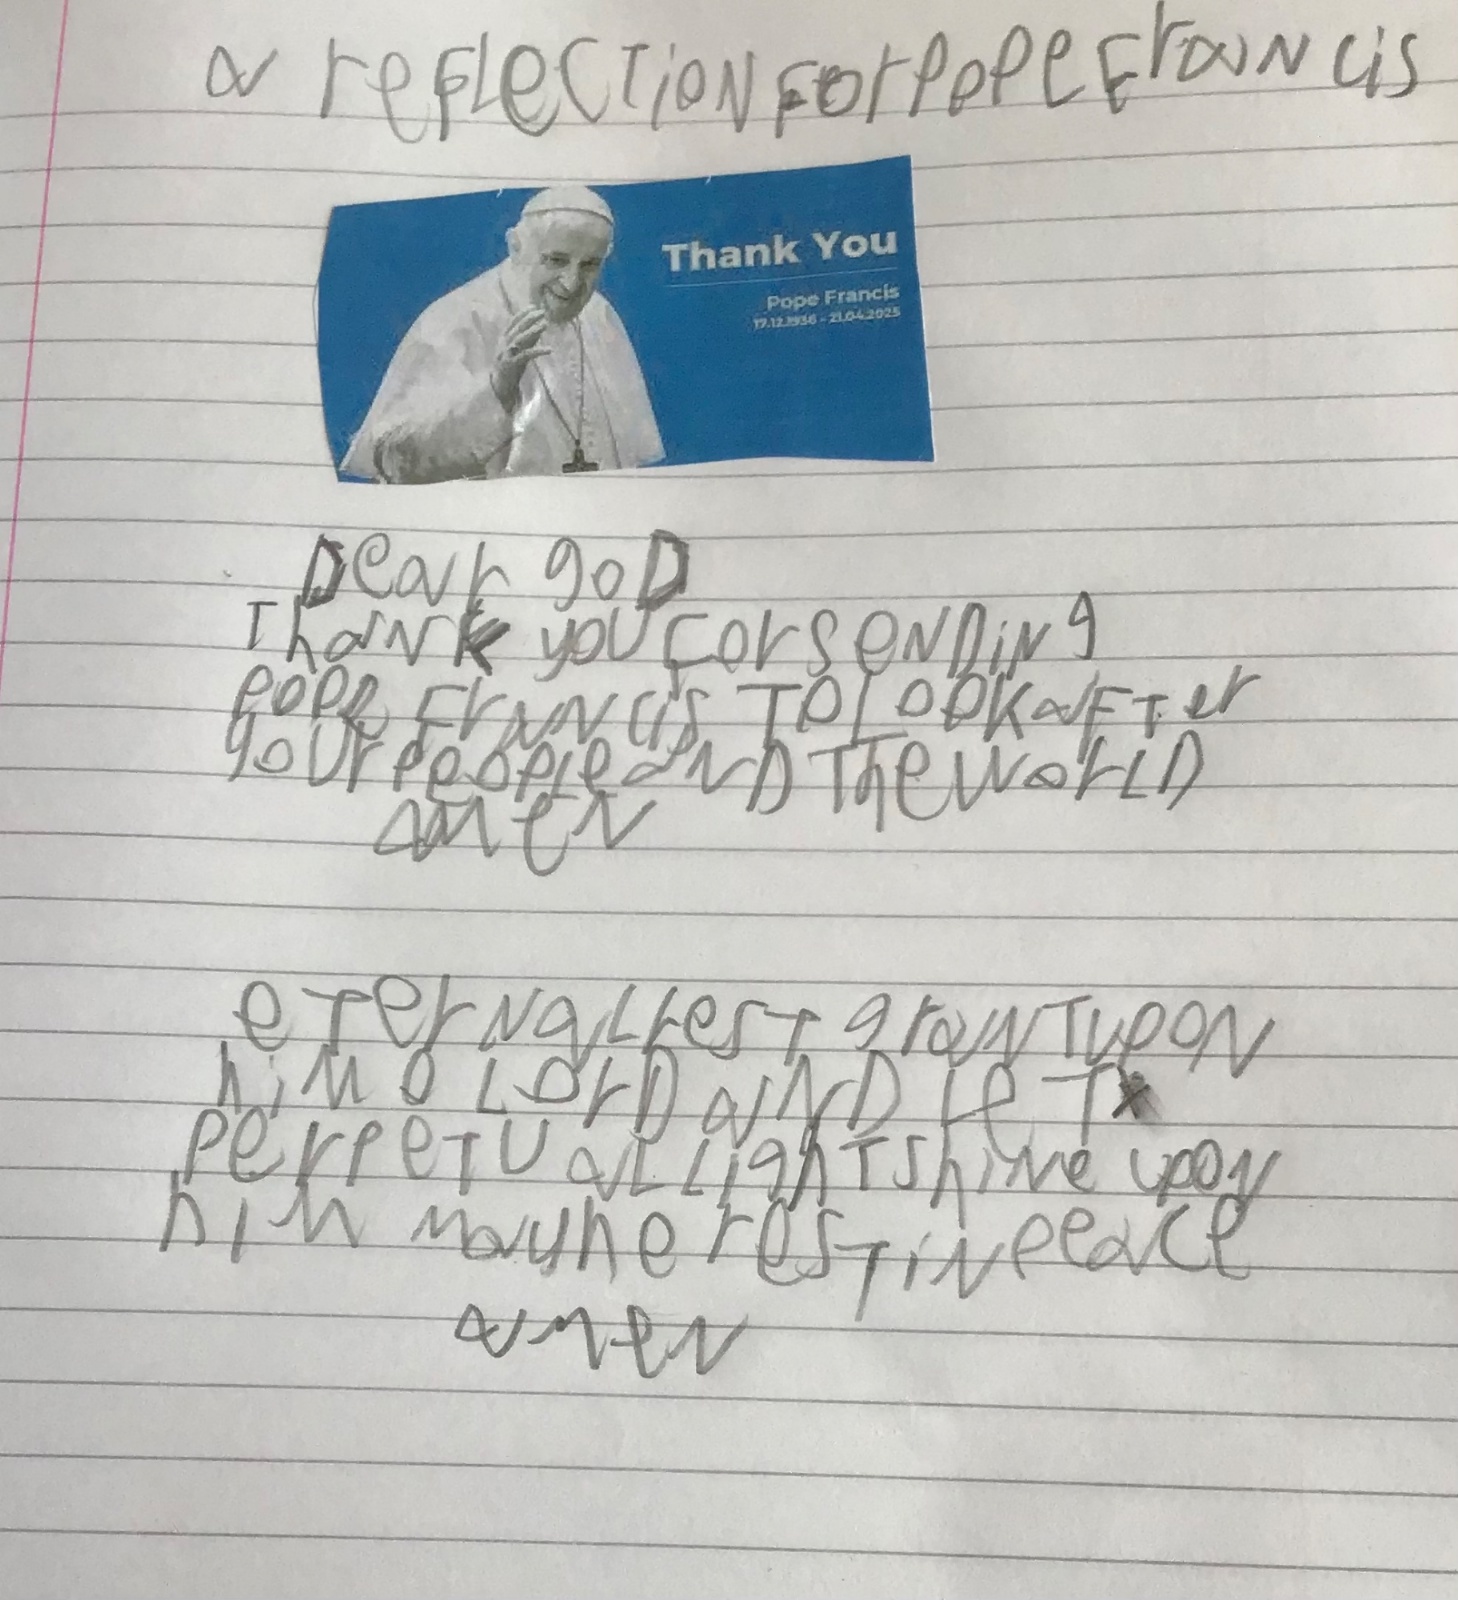 a reflection for pope Francis
Thank You
Pope Francis
17.12.1936 - 21.04.2025
Dear goD
Thank you for senDing
pope Francis To look after
your people anD The worlD
amen
eTernal resT granT upon
him o LorD anD leT
perpeTual LighT shine upon
him may he resT in peace
amen